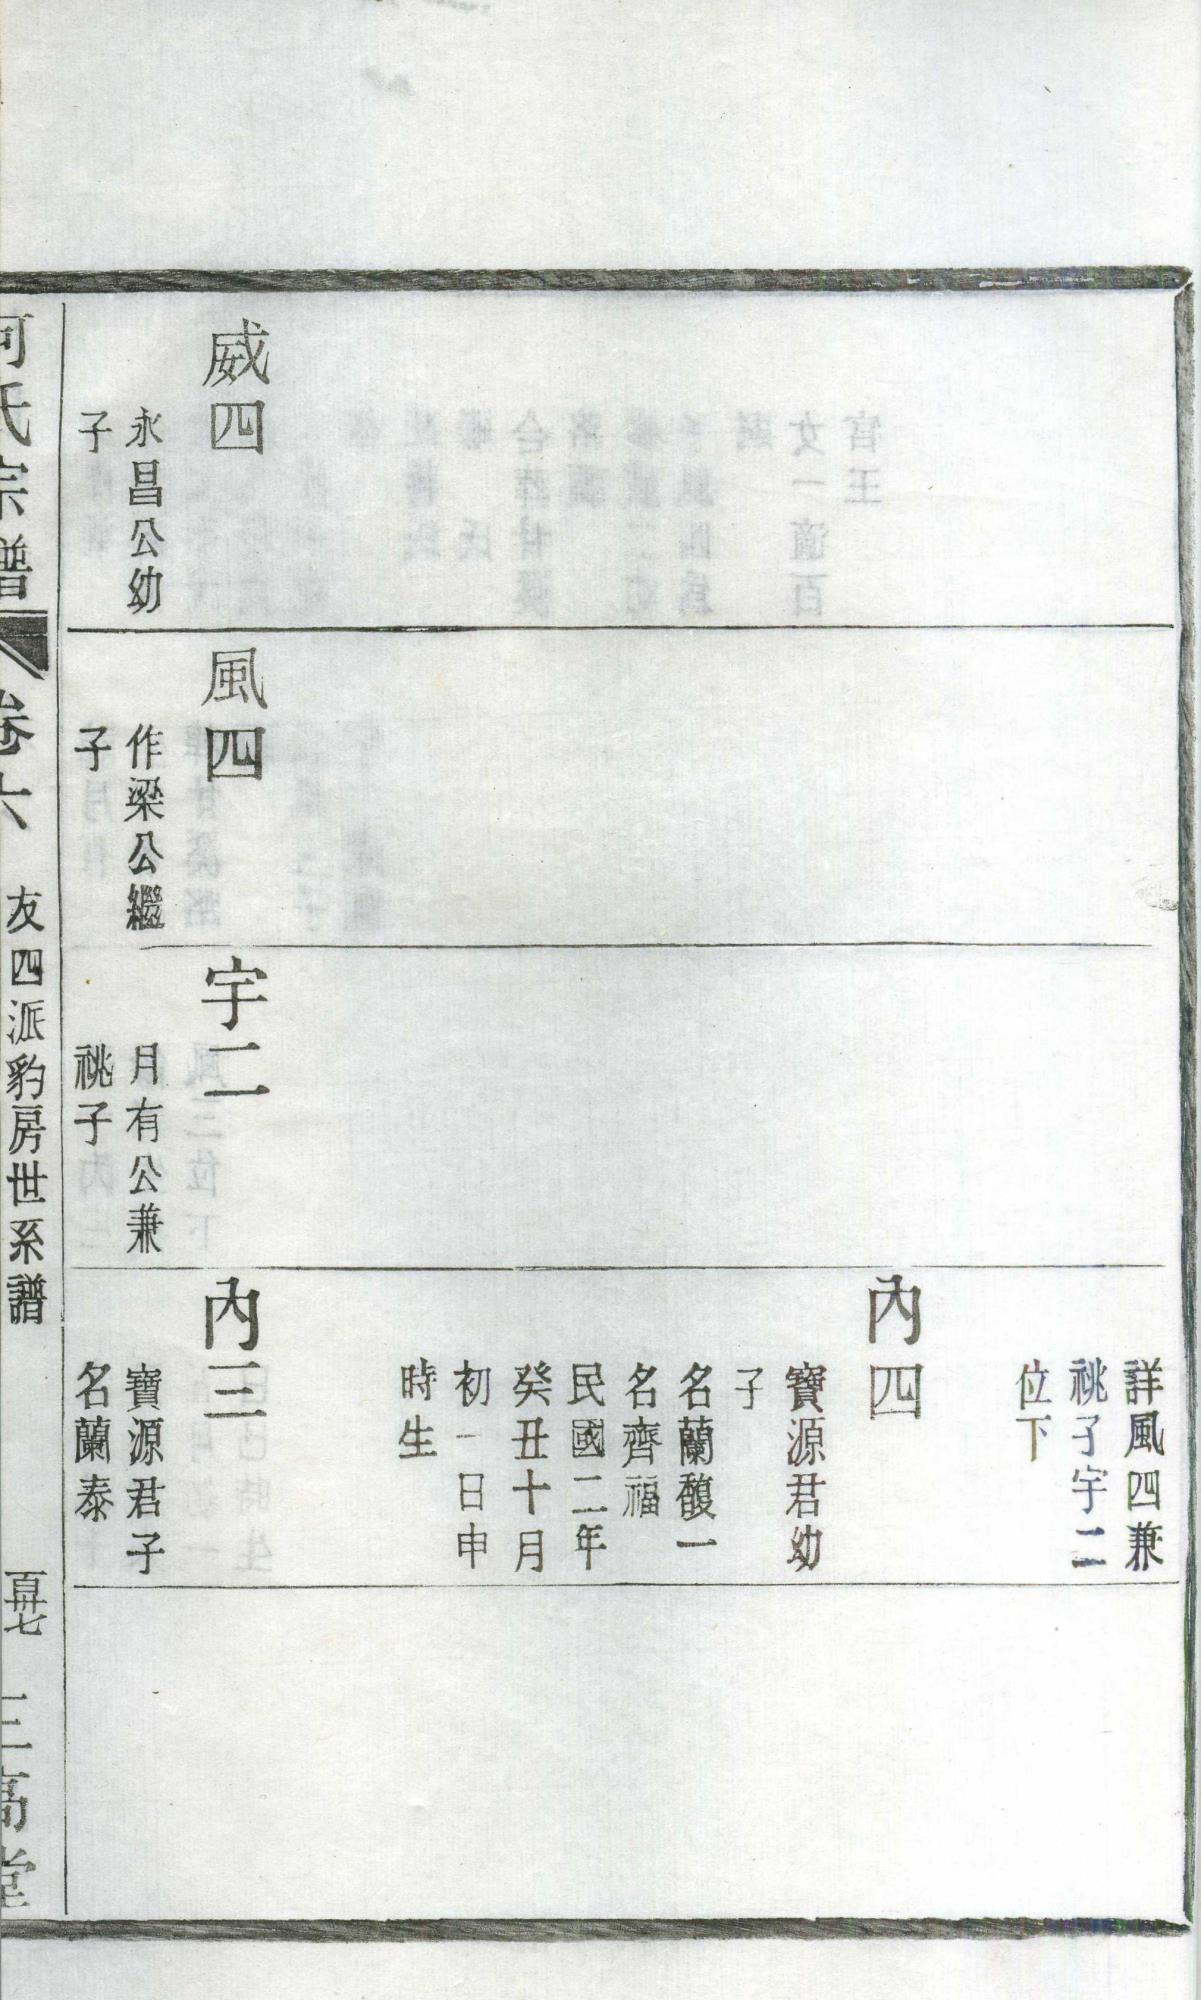 威四
永昌公幼
子
風四
作梁公繼
子
宇二
月有公兼
祧子
詳風四兼
祧子宇二
位下
內四
寶源君幼
子
名蘭馥一
名齊福
民國二年
癸丑十月
初一日申
時生
內三
寶源君子
名蘭泰
何氏宗譜
卷六
友四派豹房世系譜
百卅七
三高堂